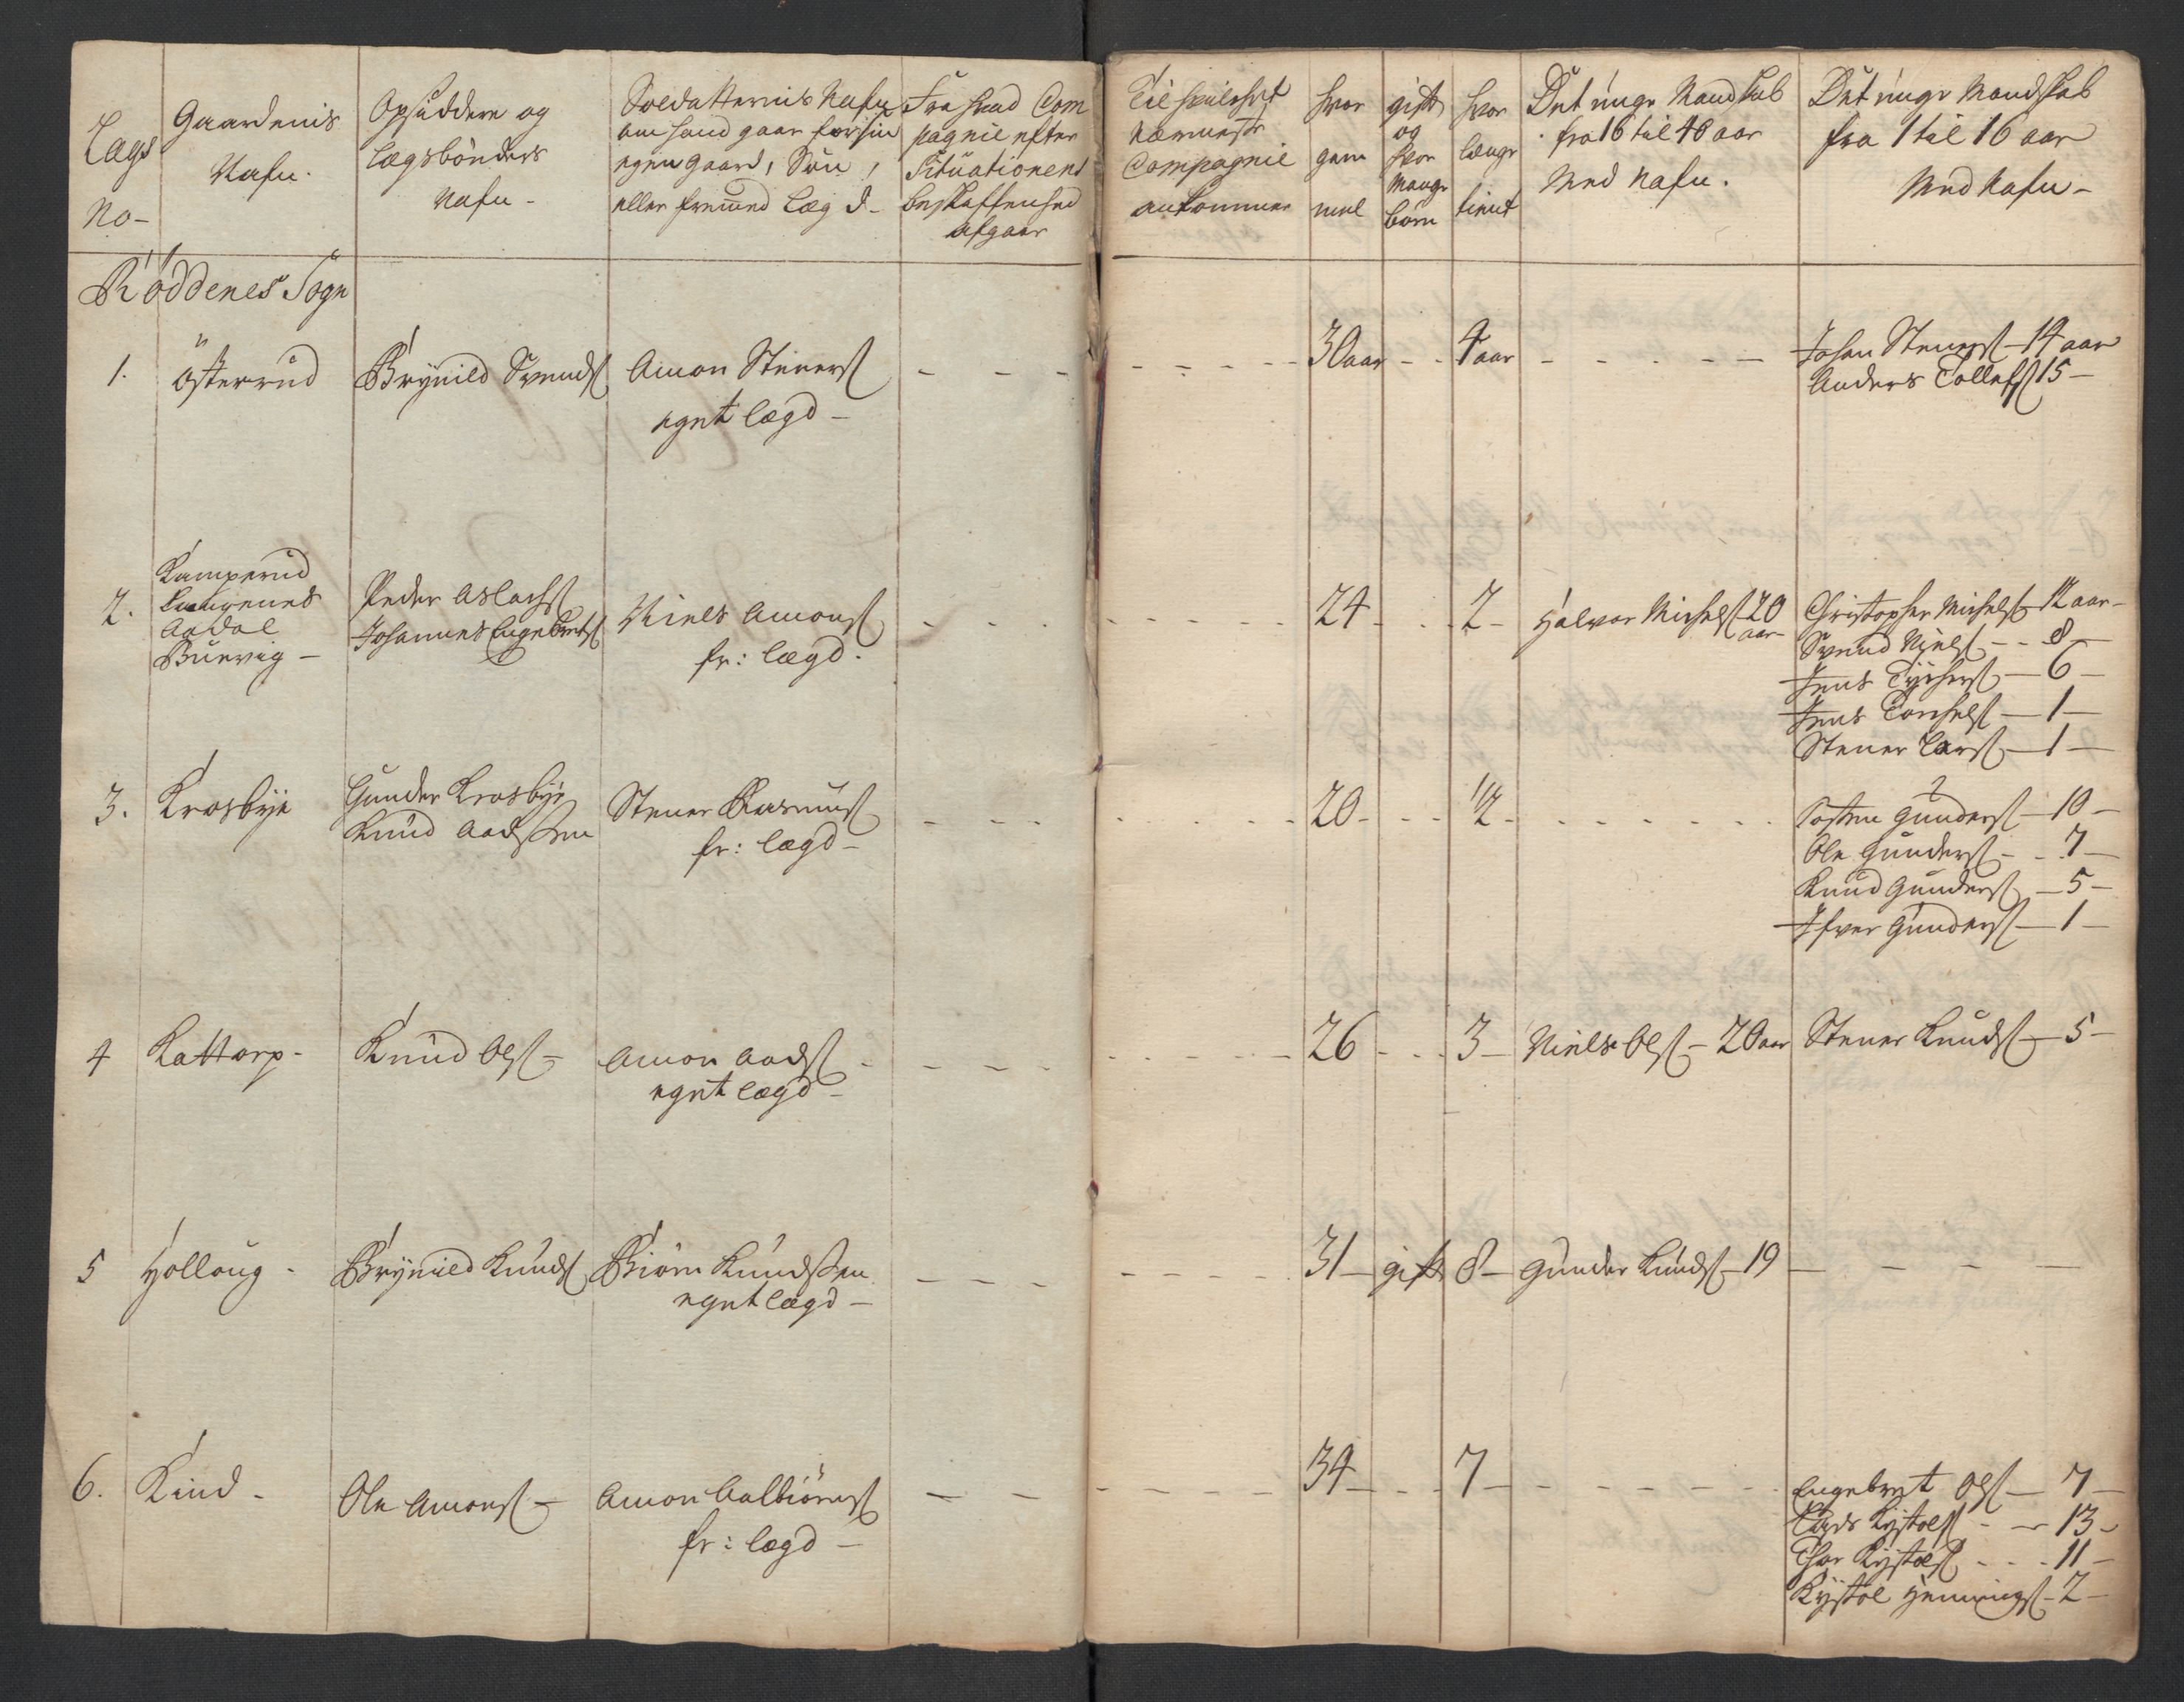 Lægs
No-
Gaardenis
Nafn.
Opsiddere og
Lægsbönders
Nafn-
Soldatternis Nafn
om hand gaar for sin
egen gaard, Sön,
eller fremed Læg d-
Fra hvad Com
pagnie efter
Situationens
beskaffenhed
afgaar
Til hvilchet
nærmeste
Compagnie
ankommer
hvor
gam
mel
gift
og
hvor
mange
börn
hvor
længe
tient
Det unge Mandskab
fra 16 til 40 aar
Med Nafn.
Det unge Mandskab
fra 1 til 16 aar
Med Nafn-
Röddenes Sogn
1.
Österrud
Brynild Svends
Amon Steners
eget lægd-
30 aar
4 aar
Johan Steners-14 aar
Anders Tollefs 15-
2.
Kamperud
Aadal
Buervig-
Peder Aslachs
Johannes Engebrets
Niels Amons
fr: lægd.
24
2-
Halvor Michels 20
aar-
Christopher Michels-12 aar-
Svend Niels--8-
Jens -6-
Jens -1-
Stener Lars-1-
3.
Krosbye
Gunder Krosbye
Knud Aadssen
Stener Rasmus
fr: lægd-
20
1/2
Tosten Gunders-10-
Ole Gunders--7-
Knud Gunders-5-
Ifver Gunders-1-
4
Kattorp-
Knud Ols-
Amon Aads-
eget lægd-
26
3-
Niels Ols-20 aar
Stener Knuds-5-
5
Holloug-
Brynild Knuds
Biörn Knudssen
eget lægd-
31-
gift
8-
Gunder Knuds-19
6.
Kind-
Ole Amons-
Amon Aalbiörns
fr: lægd-
34-
7-
Engebret Ols-7-
Lars Kystols--13-
Thor Kystols---11-
Kystol Hennings-2-